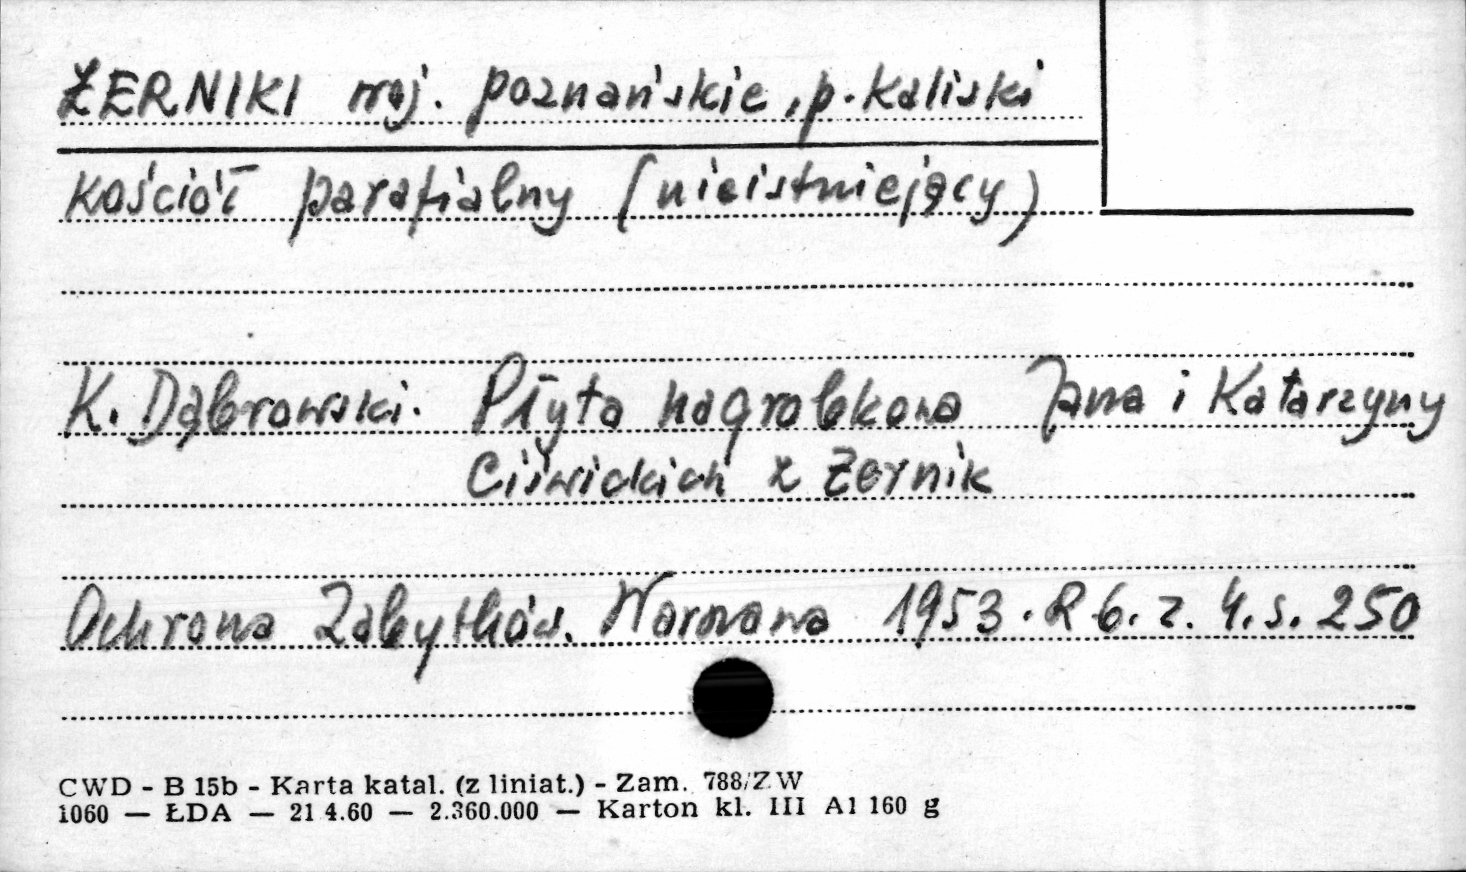 ŻERNIKI woj. poznańskie, p. kaliski
kościół parafialny (nieistniejący)
K. Dąbrowski. Płyta nagrobkowa Jana i Katarzyny
Ciświckich z Żernik
Ochrona Zabytków. Warszawa 1953. R 6. z. 4. s. 250
CWD - B 15b - Karta katal. (z liniat.) - Zam. 788/ZW
1060 — ŁDA — 21 4.60 — 2.360.000 — Karton kl. III A1 160 g